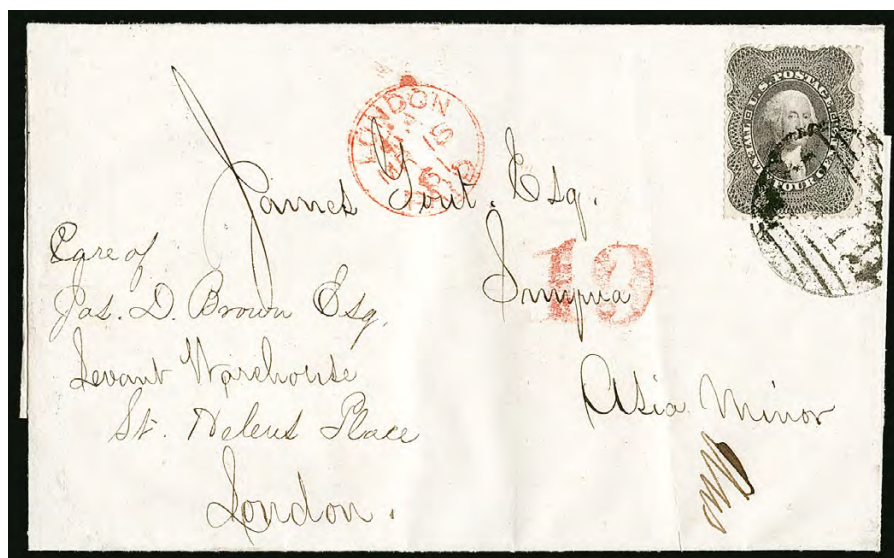 LONDON
U.S. POSTAGE
TWENTY FOUR CENTS
19
James Gout. Esq.
Smyrna
Asia Minor
Care of
Jas. D. Brown Esq.
Levant Warehouse
St. Helens Place
London.